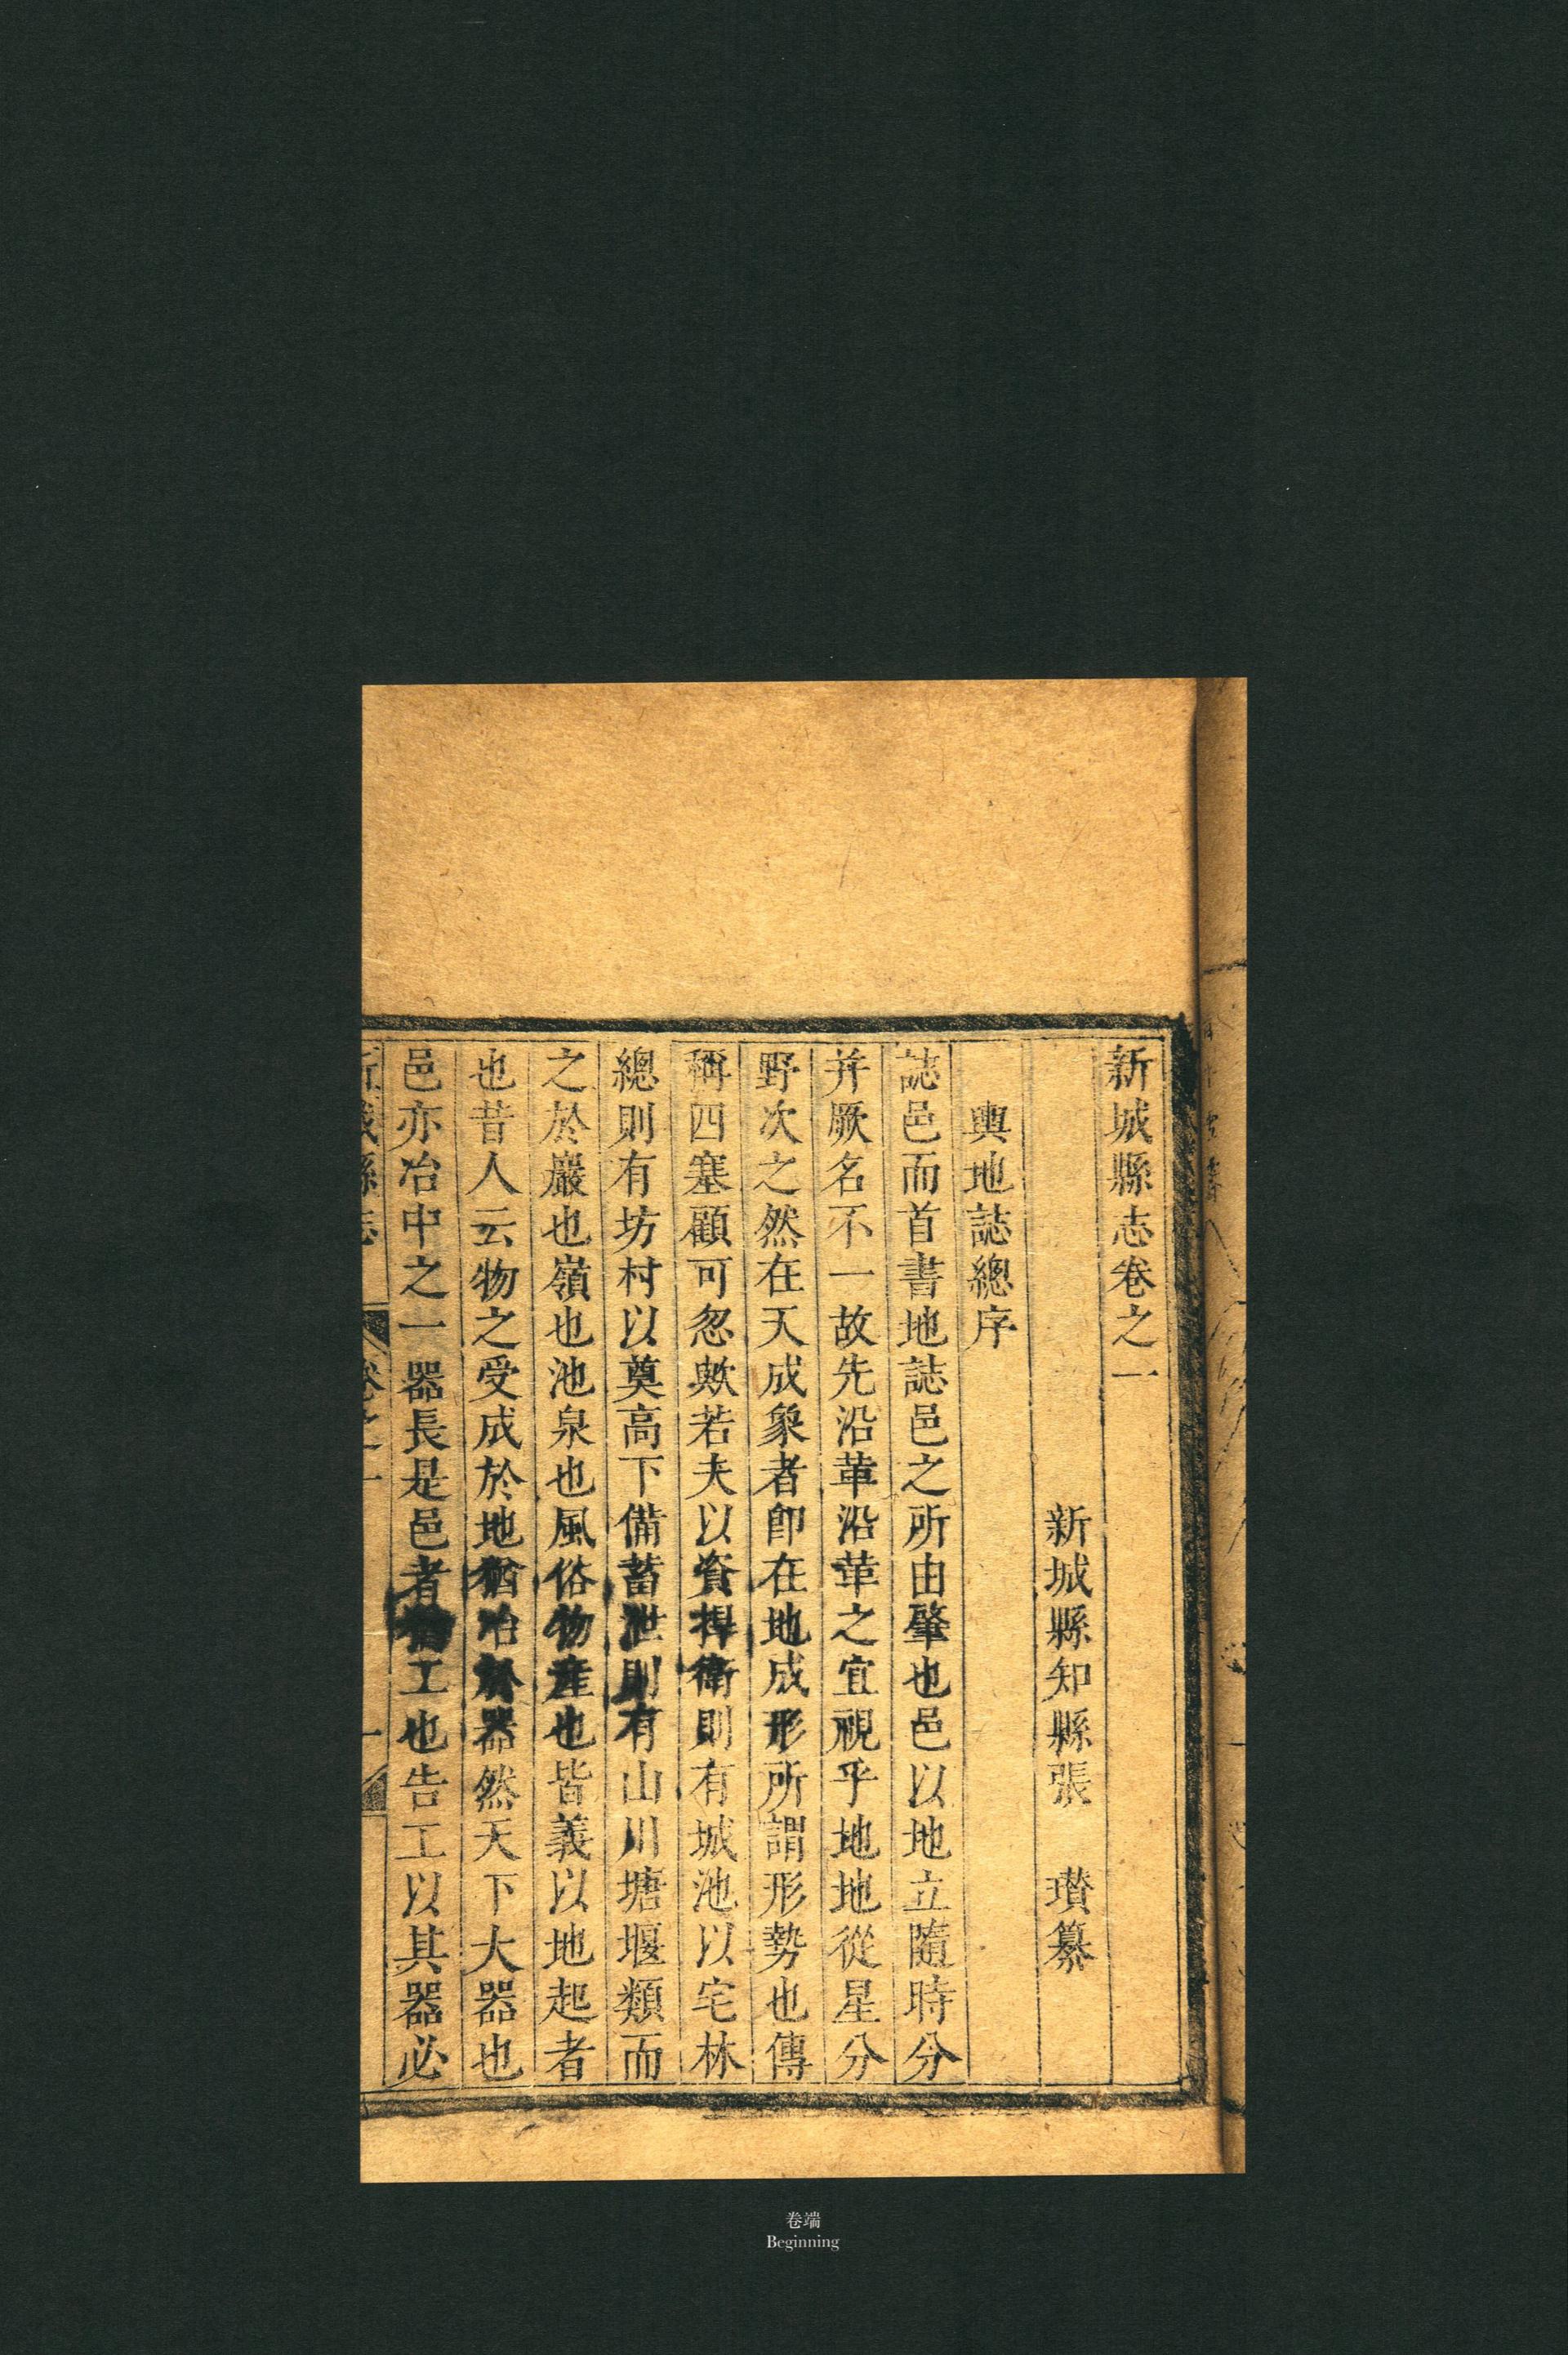 新城縣志卷之一
新城縣知縣張 瓚纂
輿地誌總序
誌邑而首書地誌邑之所由肇也邑以地立隨時分
并厥名不一故先沿革沿革之宜視乎地地從星分
野次之然在天成象者卽在地成形所謂形勢也傳
稱四塞顧可忽歟若夫以資捍衛則有城池以宅林
總則有坊村以奠高下備蓄泄則有山川塘堰類而
之於巖也嶺也池泉也風俗物產也皆義以地起者
也昔人云物之受成於地猶冶於器然天下大器也
邑亦冶中之一器長是邑者工也告工以其器必
卷端
Beginning